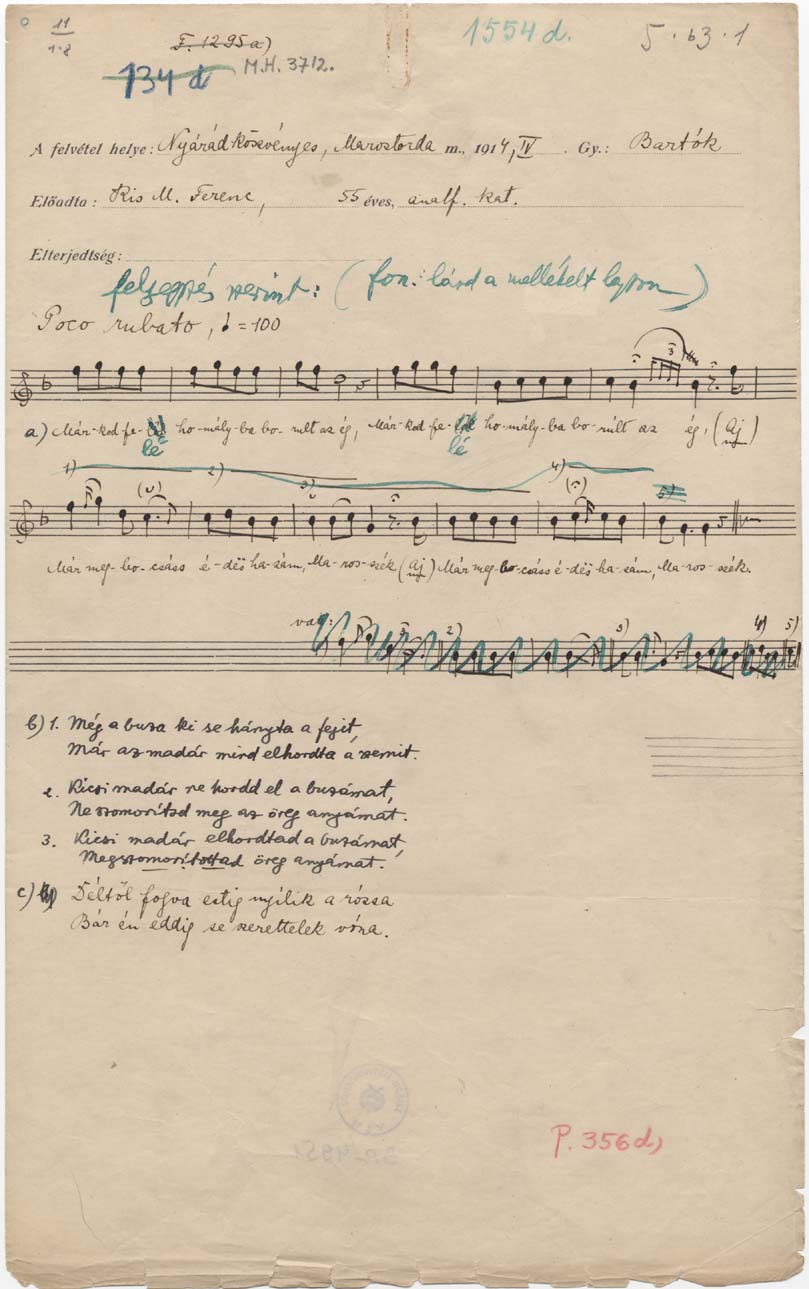 11
1-8
F. 1295 a)
1554 d.
5.63.1
134 d
M.H. 3712.
A felvétel helye: Nyárádköszvényes, Marostorda m., 1914, IV. Gy.: Bartók
Előadta: Kis M. Ferenc, 55 éves, analf. kat.
Elterjedtség:
feljegyzés szerint: (fon.: lásd a mellékelt lapon)
Poco rubato, ♩ = 100
3
a) Már-kod-fe- ho-mály-ba bo-rult az ég, Már-kod-fe- ho-mály-ba bo-rúlt az ég, (Aj)
lé lé
1) 2) 3) 4) 5)
Már meg-bo-csáss é-dës ha-zám, Ma-ros-szék (Aj) Már meg-bo-csáss é-dës ha-zám, Ma-ros-szék.
vagy:
2) 3) 4) 5)
b) 1. Még a buza ki se hányta a fejit,
Már az madár mind elhordta a szemit.
2. Kicsi madár ne hordd el a buzámat,
Ne szomorítsd meg az öreg anyámat.
3. Kicsi madár elhordtad a buzámat,
Megszomorítottad öreg anyámat.
c) Déltől fogva estig nyílik a rózsa
Bár én eddig se szerettelek vóna.
P. 356 d)